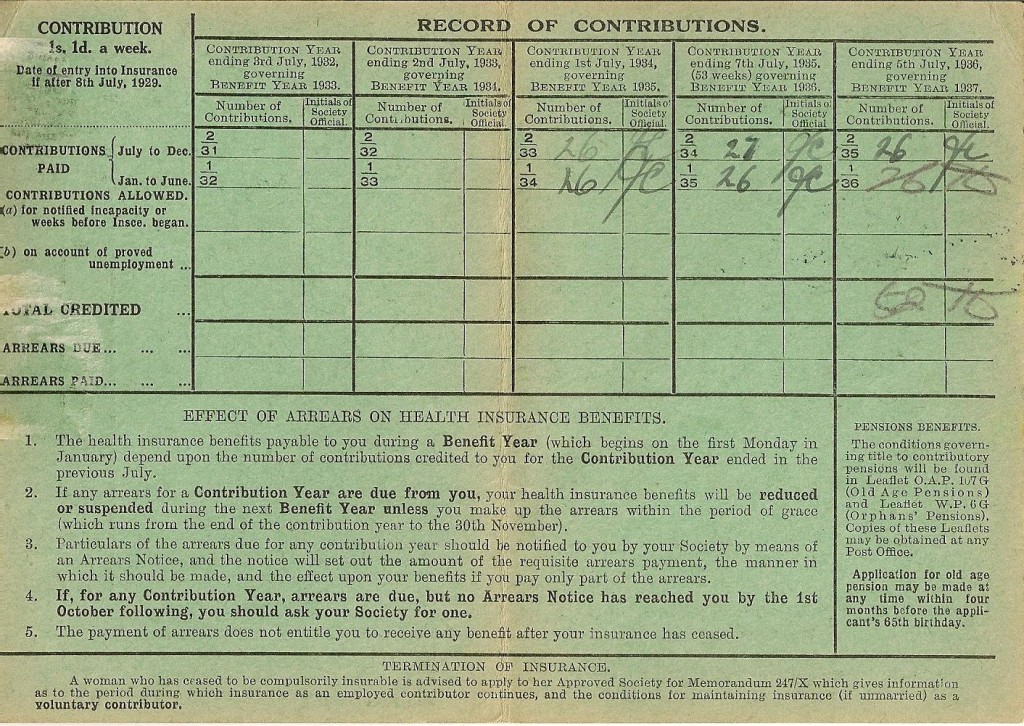 CONTRIBUTION
1s. 1d. a week.
Date of entry into Insurance
if after 8th July, 1929.
RECORD OF CONTRIBUTIONS.
CONTRIBUTION YEAR
ending 3rd July, 1932,
governing
BENEFIT YEAR 1933.
CONTRIBUTION YEAR
ending 2nd July, 1933,
governing
BENEFIT YEAR 1934.
CONTRIBUTION YEAR
ending 1st July, 1934,
governing
BENEFIT YEAR 1935.
CONTRIBUTION YEAR
ending 7th July, 1935.
(53 weeks) governing
BENEFIT YEAR 1936.
CONTRIBUTION YEAR
ending 5th July, 1936,
governing
BENEFIT YEAR 1937.
Number of Contributions. Initials of Society Official.
Number of Contributions. Initials of Society Official.
Number of Contributions. Initials of Society Official.
Number of Contributions. Initials of Society Official.
Number of Contributions. Initials of Society Official.
CONTRIBUTIONS PAID
July to Dec. 2/31 2/32 2/33 26 2/34 27 gc 2/35 26
Jan. to June. 1/32 1/33 1/34 26 gc 1/35 26 gc 1/36 26
CONTRIBUTIONS ALLOWED.
(a) for notified incapacity or
weeks before Insce. began.
(b) on account of proved
unemployment ...
TOTAL CREDITED ... 52
ARREARS DUE... ... ...
ARREARS PAID... ... ...
EFFECT OF ARREARS ON HEALTH INSURANCE BENEFITS.
1. The health insurance benefits payable to you during a Benefit Year (which begins on the first Monday in
January) depend upon the number of contributions credited to you for the Contribution Year ended in the
previous July.
2. If any arrears for a Contribution Year are due from you, your health insurance benefits will be reduced
or suspended during the next Benefit Year unless you make up the arrears within the period of grace
(which runs from the end of the contribution year to the 30th November).
3. Particulars of the arrears due for any contribution year should be notified to you by your Society by means of
an Arrears Notice, and the notice will set out the amount of the requisite arrears payment, the manner in
which it should be made, and the effect upon your benefits if you pay only part of the arrears.
4. If, for any Contribution Year, arrears are due, but no Arrears Notice has reached you by the 1st
October following, you should ask your Society for one.
5. The payment of arrears does not entitle you to receive any benefit after your insurance has ceased.
PENSIONS BENEFITS.
The conditions govern-
ing title to contributory
pensions will be found
in Leaflet O.A.P. 107G
(Old Age Pensions)
and Leaflet W.P. 6G
(Orphans' Pensions).
Copies of these Leaflets
may be obtained at any
Post Office.
Application for old age
pension may be made at
any time within four
months before the appli-
cant's 65th birthday.
TERMINATION OF INSURANCE.
A woman who has ceased to be compulsorily insurable is advised to apply to her Approved Society for Memorandum 247/X which gives information
as to the period during which insurance as an employed contributor continues, and the conditions for maintaining insurance (if unmarried) as a
voluntary contributor.